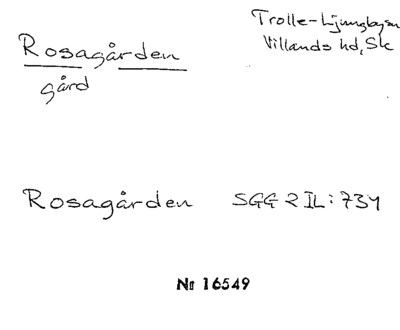 Rosagården
gård
Trolle-Ljungbysn
Villands hd, Sk
Rosagården SGG 2 IL: 734
No 16549